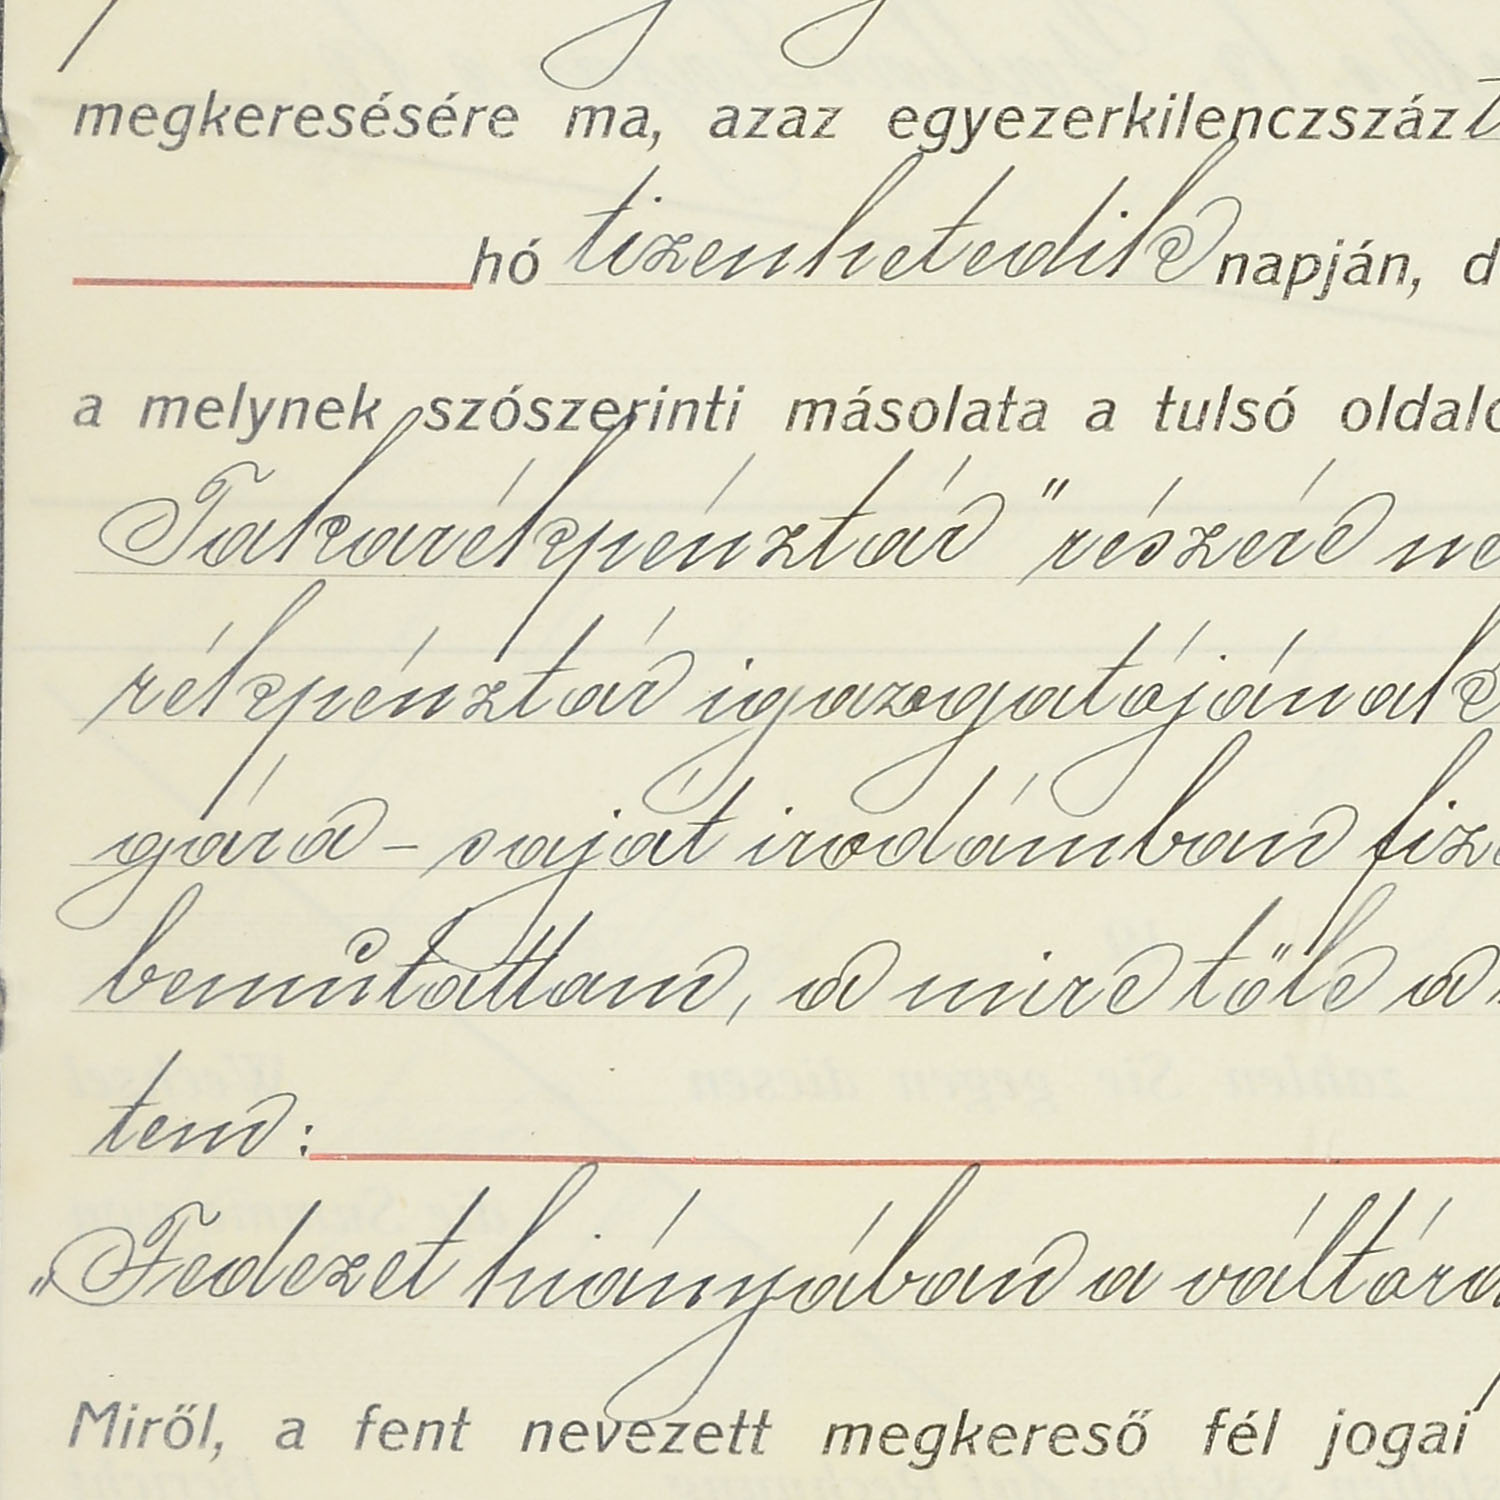 megkeresésére ma, azaz egyezerkilenczszáz
hó tizenhetedik napján, d
a melynek szószerinti másolata a tulsó oldalo
Takarékpénztár" részére ne
rékpénztár igazgatójának
gára - saját irodámban fize
bemutattam, a mire tőle a
tem:
„Fedezet hiányában a váltára
Miről, a fent nevezett megkereső fél jogai
zahlen Sie gegen diesen Wechsel